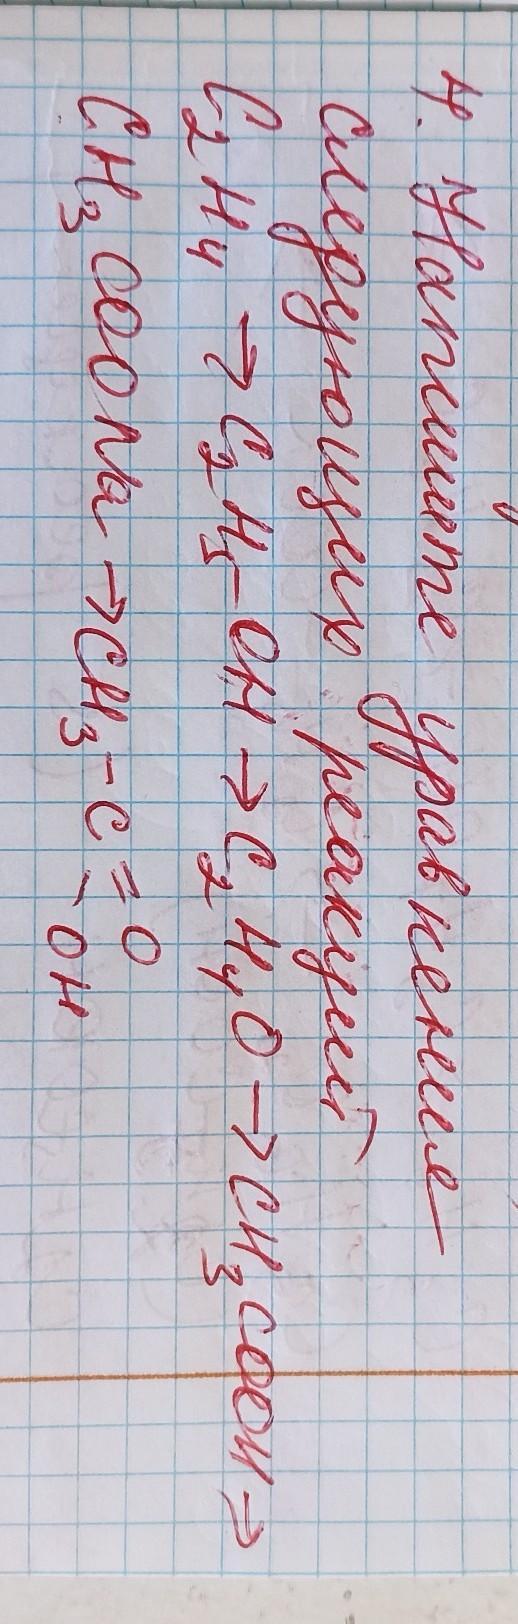 4. Напишите уравнение
следующих реакций
C₂H₄ → C₂H₅-OH → C₂H₄O → CH₃COOH →
CH₃COONa → CH₃-C=O
-OH